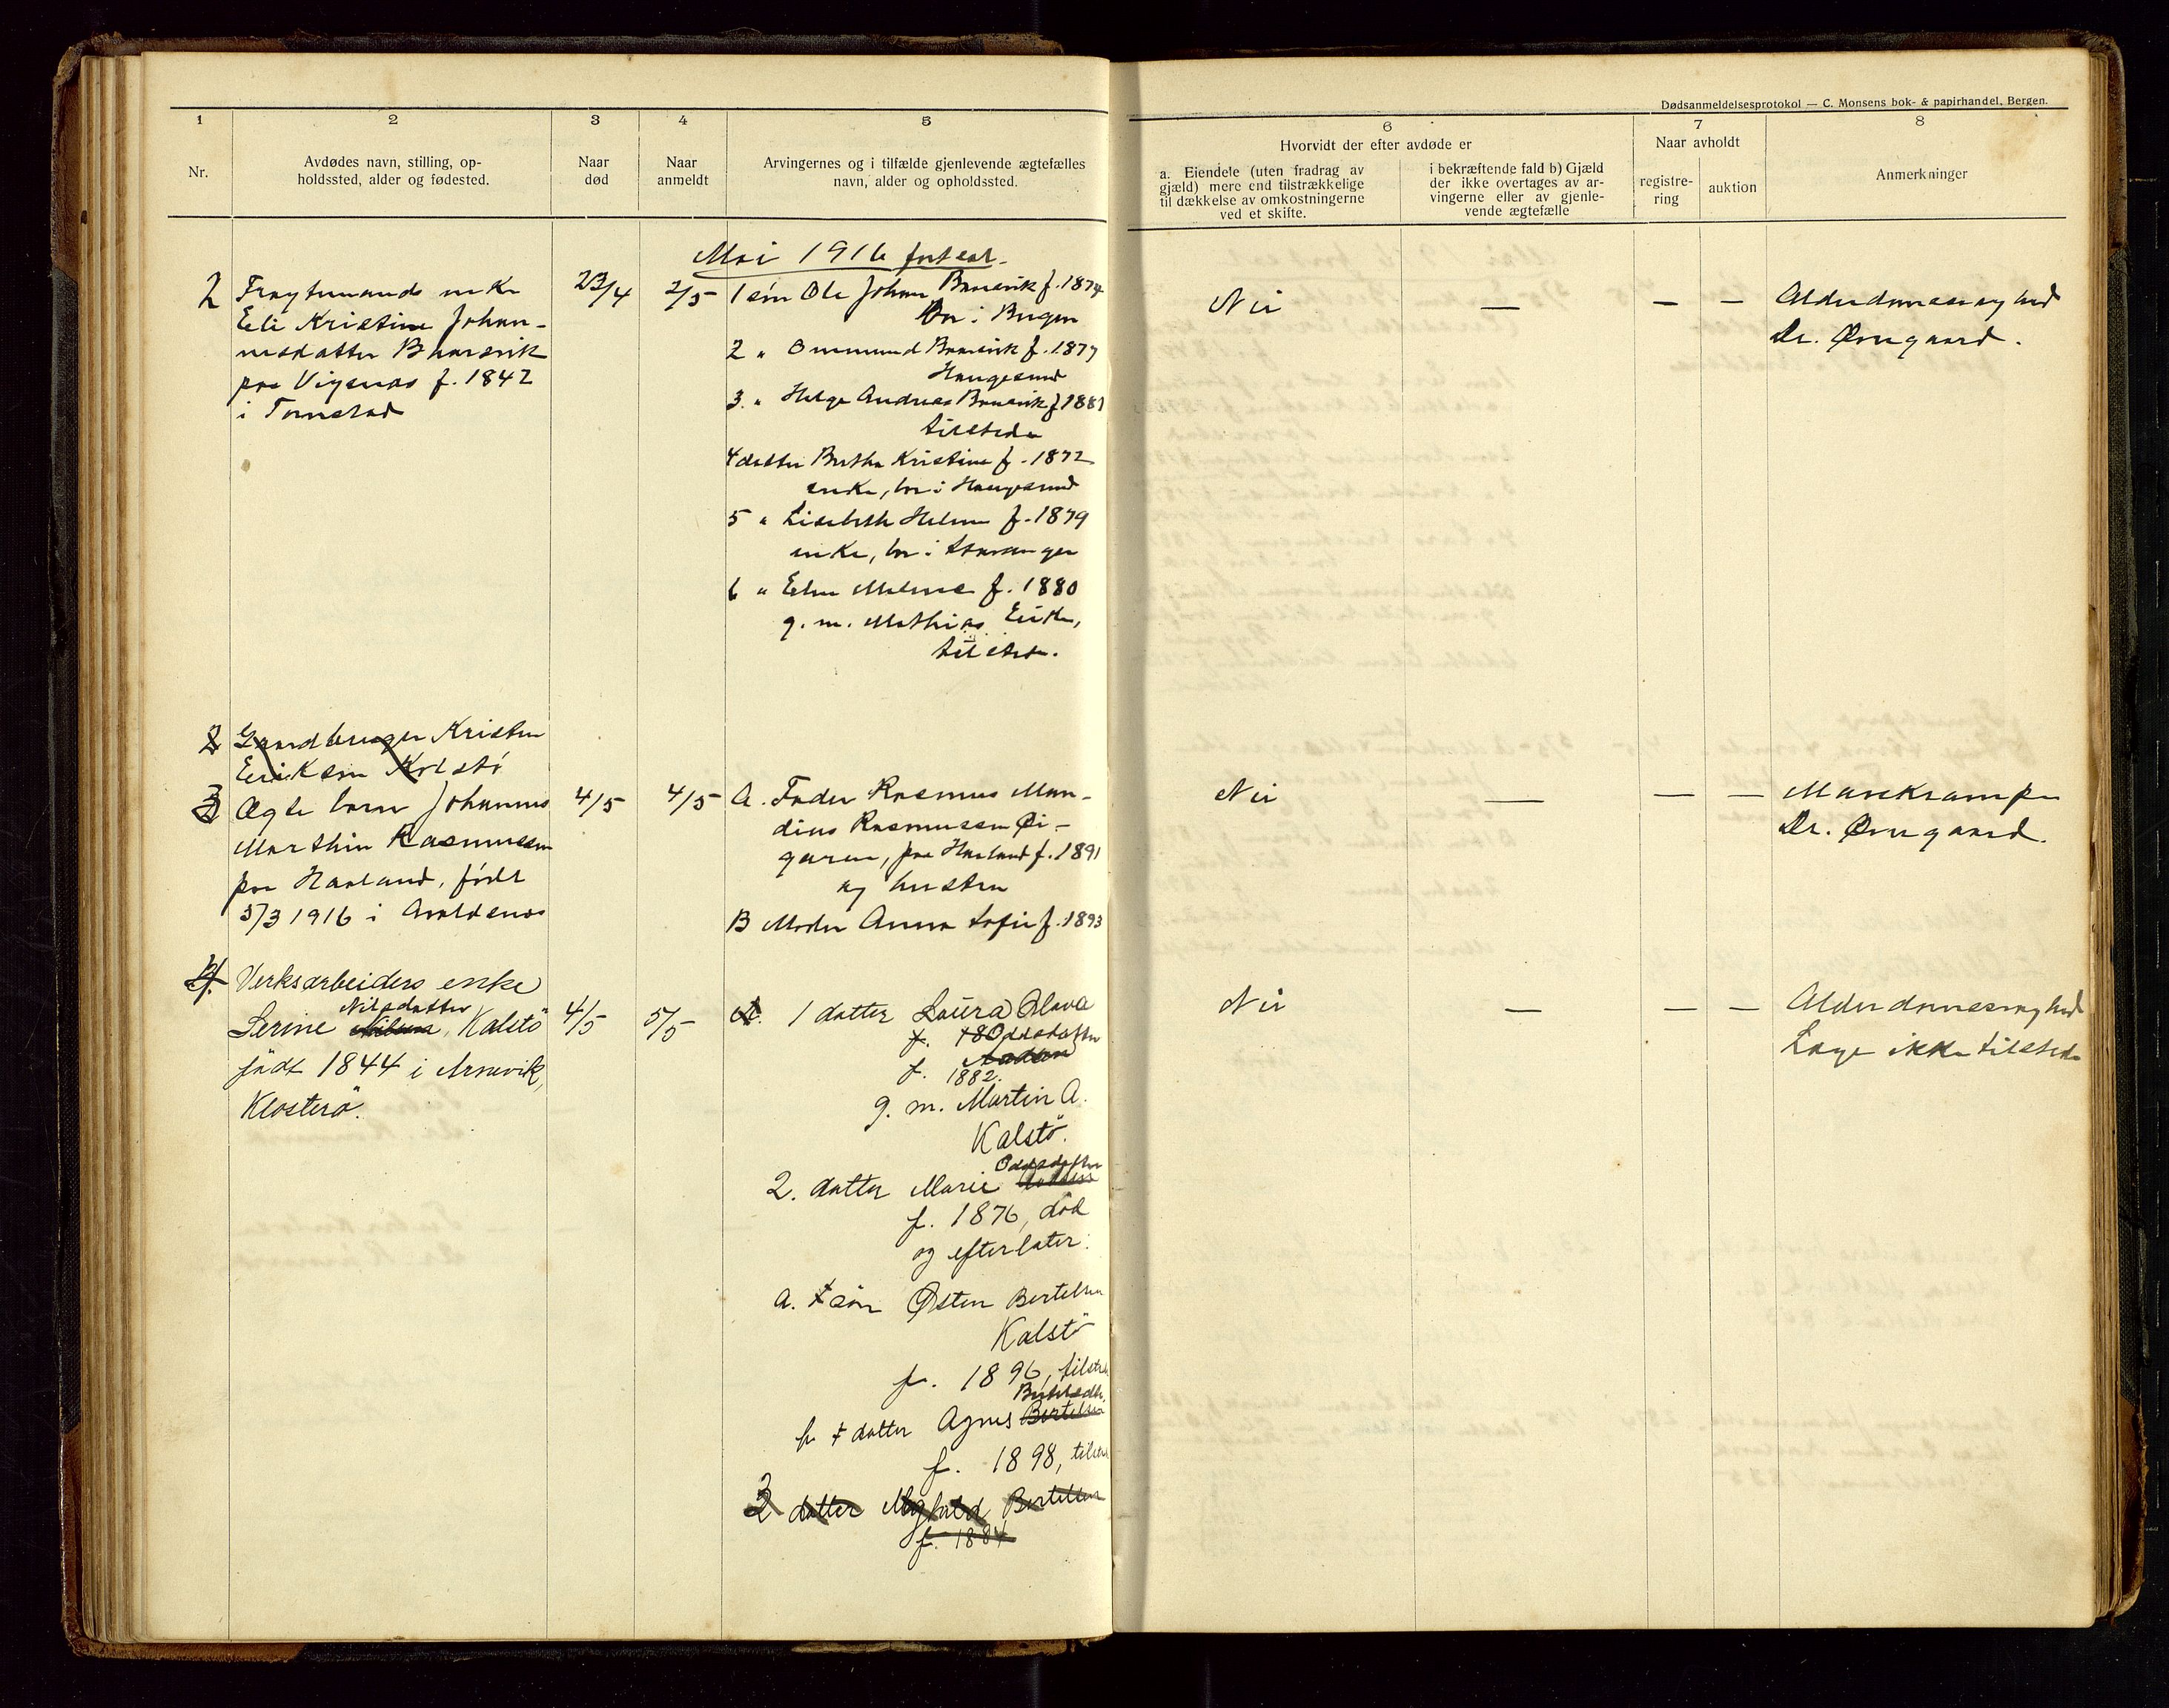 Dødsanmeldelsesprotokol — C. Monsens bok- & papirhandel, Bergen.
1 2 3 4 5 6 7 8
Nr.
Avdødes navn, stilling, op-
holdssted, alder og fødested.
Naar
død
Naar
anmeldt
Arvingernes og i tilfælde gjenlevende ægtefælles
navn, alder og opholdssted.
Hvorvidt der efter avdøde er
a. Eiendele (uten fradrag av
gjæld) mere end tilstrækkelige
til dækkelse av omkostningerne
ved et skifte.
i bekræftende fald b) Gjæld
der ikke overtages av ar-
vingerne eller av gjenle-
vende ægtefælle
Naar avholdt
registre-
ring
auktion
Anmerkninger
Mai 1916 fortsat.
2
enke
Eli Kristine Johan-
nesdatter
paa Vigsnæs f. 1842
i Tornstad
23/4
2/5
1 søn Ole Johan f. 1874
bor i Bergen
2 " f. 1877
Haugesund
3. " Helge Andreas f 1881
tilstede
4 datter Bertha Kristine f. 1872
enke, bor i Haugesund
5 " Lisebeth Helene f. 1879
enke, bor i Stavanger
6 " f. 1880
g. m. Mathias Eike,
tilstede.
Nei
—
— —
Alderdomssvaghed
Dr. Øvregaard.
2
Gaardbruger Kristen
Eriksen Kolstø
3
Ægte barn Johannes
Marthin Rasmussen
paa Havland, født
5/3 1916 i Avaldsnæs
4/5
4/5
A. Fader Rasmus Man-
dius Rasmussen Øi-
garen, paa Havland f. 1891
og hustru
B Moder Anna Sofie f. 1893
Nei
—
— —
Mavekrampe
Dr. Øvregaard.
4.
Verksarbeiders enke
Nilsdatter
Serine Nilsen, Kalstö
født 1844 i Arnevik,
Klosterö.
4/5
5/5
A. 1 datter Laura Olava
f. 180 Oddsdatter
f.
1882.
g. m. Martin A.
Kalstö.
Oddsdatter
2. datter Marie
f. 1876, død
og efterlater:
a. 1 søn Østen Bertelsen
Kalstö
f. 1896, tilstede
Bertelsdtr.
b 1 datter Agnes Bertelsen
f. 1898, tilstede
3 datter Bertelsen
f. 1884
Nei
—
— —
Alderdomssvaghed
Læge ikke tilstede